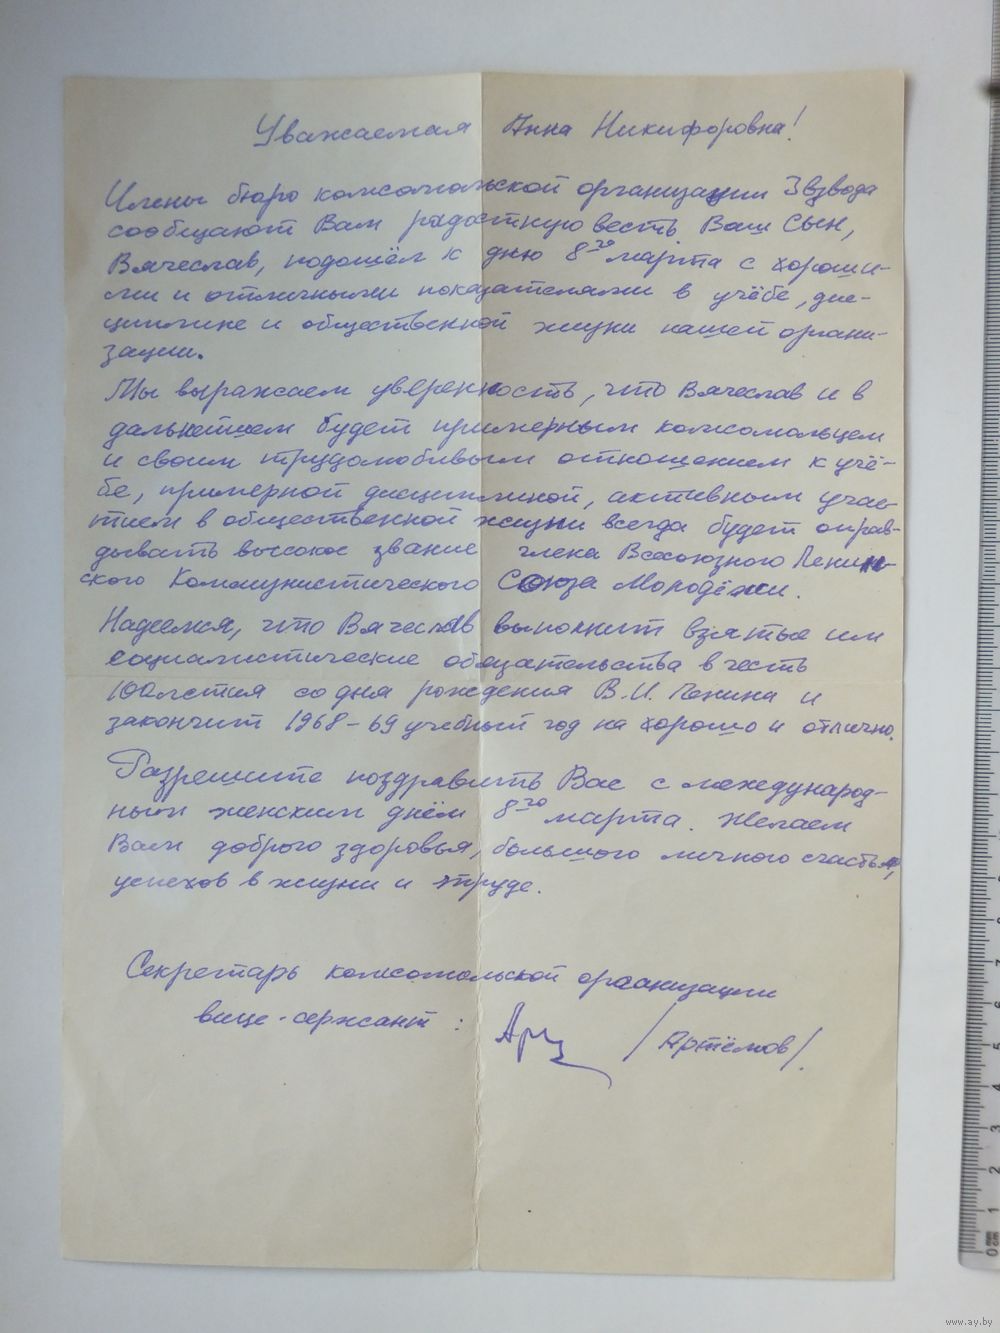 Уважаемая Анна Никифоровна!
Члены бюро комсомольской организации 3 взвода
сообщают Вам радостную весть Ваш Сын,
Вячеслав, подошёл к дню 8го марта с хороши-
ми и отличными показателями в учёбе, дис-
циплине и общественной жизни нашей органи-
зации.
Мы выражаем уверенность, что Вячеслав и в
дальнейшем будет примерным комсомольцем
и своим трудолюбивым отношением к учё-
бе, примерной дисциплиной, активным учас-
тием в общественной жизни всегда будет оправ-
дывать высокое звание члена Всесоюзного Ленин-
ского Коммунистического Союза Молодёжи.
Надеемся, что Вячеслав выполнит взятые им
социалистические обязательства в честь
100летия со дня рождения В.И. Ленина и
закончит 1968-69 учебный год на хорошо и отлично.
Разрешите поздравить Вас с международ-
ным женским днём 8го марта. Желаем
Вам доброго здоровья, большого личного счастья,
успехов в жизни и труде.
Секретарь комсомольской организации
вице-сержант: /Артёмов/.
0 1 2 3 4 5 6 7
www.ay.by